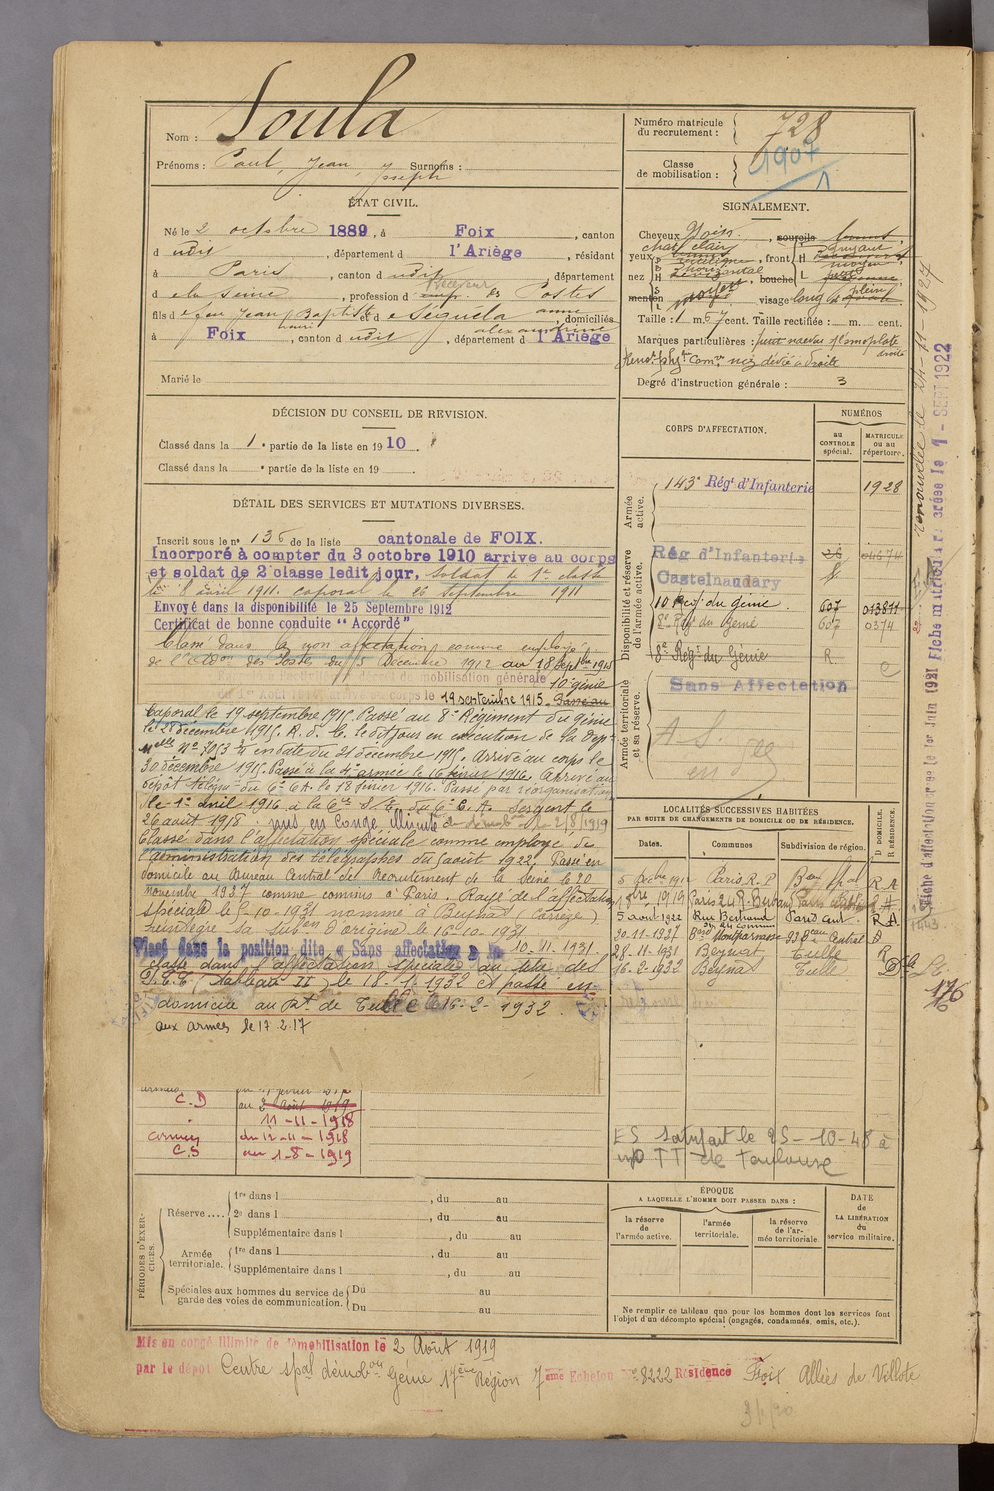 Nom : Soula
Prénoms : Paul, Jean, Joseph Surnoms :
Numéro matricule du recrutement : 728
Classe de mobilisation : 1907
ÉTAT CIVIL.
Né le 2 octobre 1889, à Foix, canton
d udit, département d l'Ariège, résidant
à Paris, canton d udit, département
d e la Seine, profession d Receveur des Postes
fils d e feu Jean Baptiste et d e Séguéla anne
à Foix, canton d udit, département d l'Ariège
domiciliés
Marié le
SIGNALEMENT.
Cheveux Noirs, sourcils
yeux, front
nez, bouche
menton, visage long plein
Taille : 1 m. 67 cent. Taille rectifiée : m. cent.
Marques particulières :
nez dévié à droite
Degré d'instruction générale : 3
DÉCISION DU CONSEIL DE REVISION.
Classé dans la 1e partie de la liste en 1910.
Classé dans la e partie de la liste en 19
DÉTAIL DES SERVICES ET MUTATIONS DIVERSES.
Inscrit sous le n° 136 de la liste cantonale de FOIX.
Incorporé à compter du 3 octobre 1910 arrive au corps
et soldat de 2e classe ledit jour, soldat de 1re classe
le 8 avril 1911. caporal le 26 septembre 1911
Envoyé dans la disponibilité le 25 Septembre 1912
Certificat de bonne conduite "Accordé"
Classé dans la non affectation comme employé
de l'Adon des Postes du 5 Décembre 1912 au 18 Septbre 1915
mobilisation générale 10e génie
corps le 19 septembre 1915.
Caporal le 19 septembre 1915. Passé au 8e Régiment du génie
le 28 décembre 1915. R. d. C. ledit jour en exécution de la Dép.
en date du 21 décembre 1915. Arrivé au corps le
30 décembre 1915. Passé à la 4e armée le 16 février 1916. Arrivé au
dépôt télégr. du 6e C.A. le 18 février 1916. Passé par réorganisation
le 1er avril 1916 à la du 6e C.A. Sergent le
26 août 1918. mis en congé illimité de démobon le 2/8/1919
Classé dans l'affectation spéciale comme employé de
l'administration des télégraphes du 1 août 1922. Passé en
domicile au Bureau Central de Recrutement de la Seine le 20
novembre 1927 comme commis à Paris. Rayé de l'affectation
spéciale le 5-10-1931 nommé à Beynat (Corrèze)
réintègre sa subon d'origine le 16-10-1931
Placé dans la position dite « Sans affectation » le 10-11-1931.
Classé dans l'affectation spéciale au titre des
P.T.T. (Tableau II) le 18-1-1932 et passé en
domicile au Rt. de Tulle le 16-2-1932.
aux armées le 17.2.17
C.D
au 2 août 1919
11-11-1918
armées du 12-11-1918
C.S au 1-8-1919
CORPS D'AFFECTATION.
NUMÉROS
au contrôle spécial.
matricule ou au répertoire.
Armée active.
143e Régt d'Infanterie 1928
Disponibilité et réserve de l'armée active.
Rég d'Infanterie 26 04674
Castelnaudary
10 Régt du génie. 607 013811
8e Régt du Génie 607 0374
8e Régt du Génie R.
Armée territoriale et sa réserve.
Sans Affectation
A S.
LOCALITÉS SUCCESSIVES HABITÉES
PAR SUITE DE CHANGEMENTS DE DOMICILE OU DE RÉSIDENCE.
Dates. Communes Subdivision de région. D DOMICILE. R RÉSIDENCE.
5 1912 Paris R. P R
1919 Paris 24 R. Bertrand
5 août 1922 Rue Bertrand Paris Cent. R
30-11-1927 Montparnasse Central D
28-11-1931 Beynat Tulle R
16-2-1932 Beynat Tulle D
ES satisfait le 25-10-48 à
TT de Toulouse
PÉRIODES D'EXERCICES.
Réserve .... 1re dans l , du au
2e dans l , du au
Supplémentaire dans l , du au
Armée territoriale. 1re dans l , du au
Supplémentaire dans l , du au
Spéciales aux hommes du service de garde des voies de communication. Du au
Du au
ÉPOQUE
A LAQUELLE L'HOMME DOIT PASSER DANS :
la réserve de l'armée active.
l'armée territoriale.
la réserve de l'armée territoriale.
DATE de LA LIBÉRATION du service militaire.
Ne remplir ce tableau que pour les hommes dont les services font l'objet d'un décompte spécial (engagés, condamnés, omis, etc.).
Mis en congé illimité de démobilisation le 2 Août 1919
par le dépôt Centre spal démobon Génie 17ème Région 7ème Echelon n° 8222 Résidence Foix Allées de Villote
Fiche matricule créée le 1 - SEPT 1922
Fiche d'affectation créée le 1er Juin 1921
renouvelée le 24-11-1927